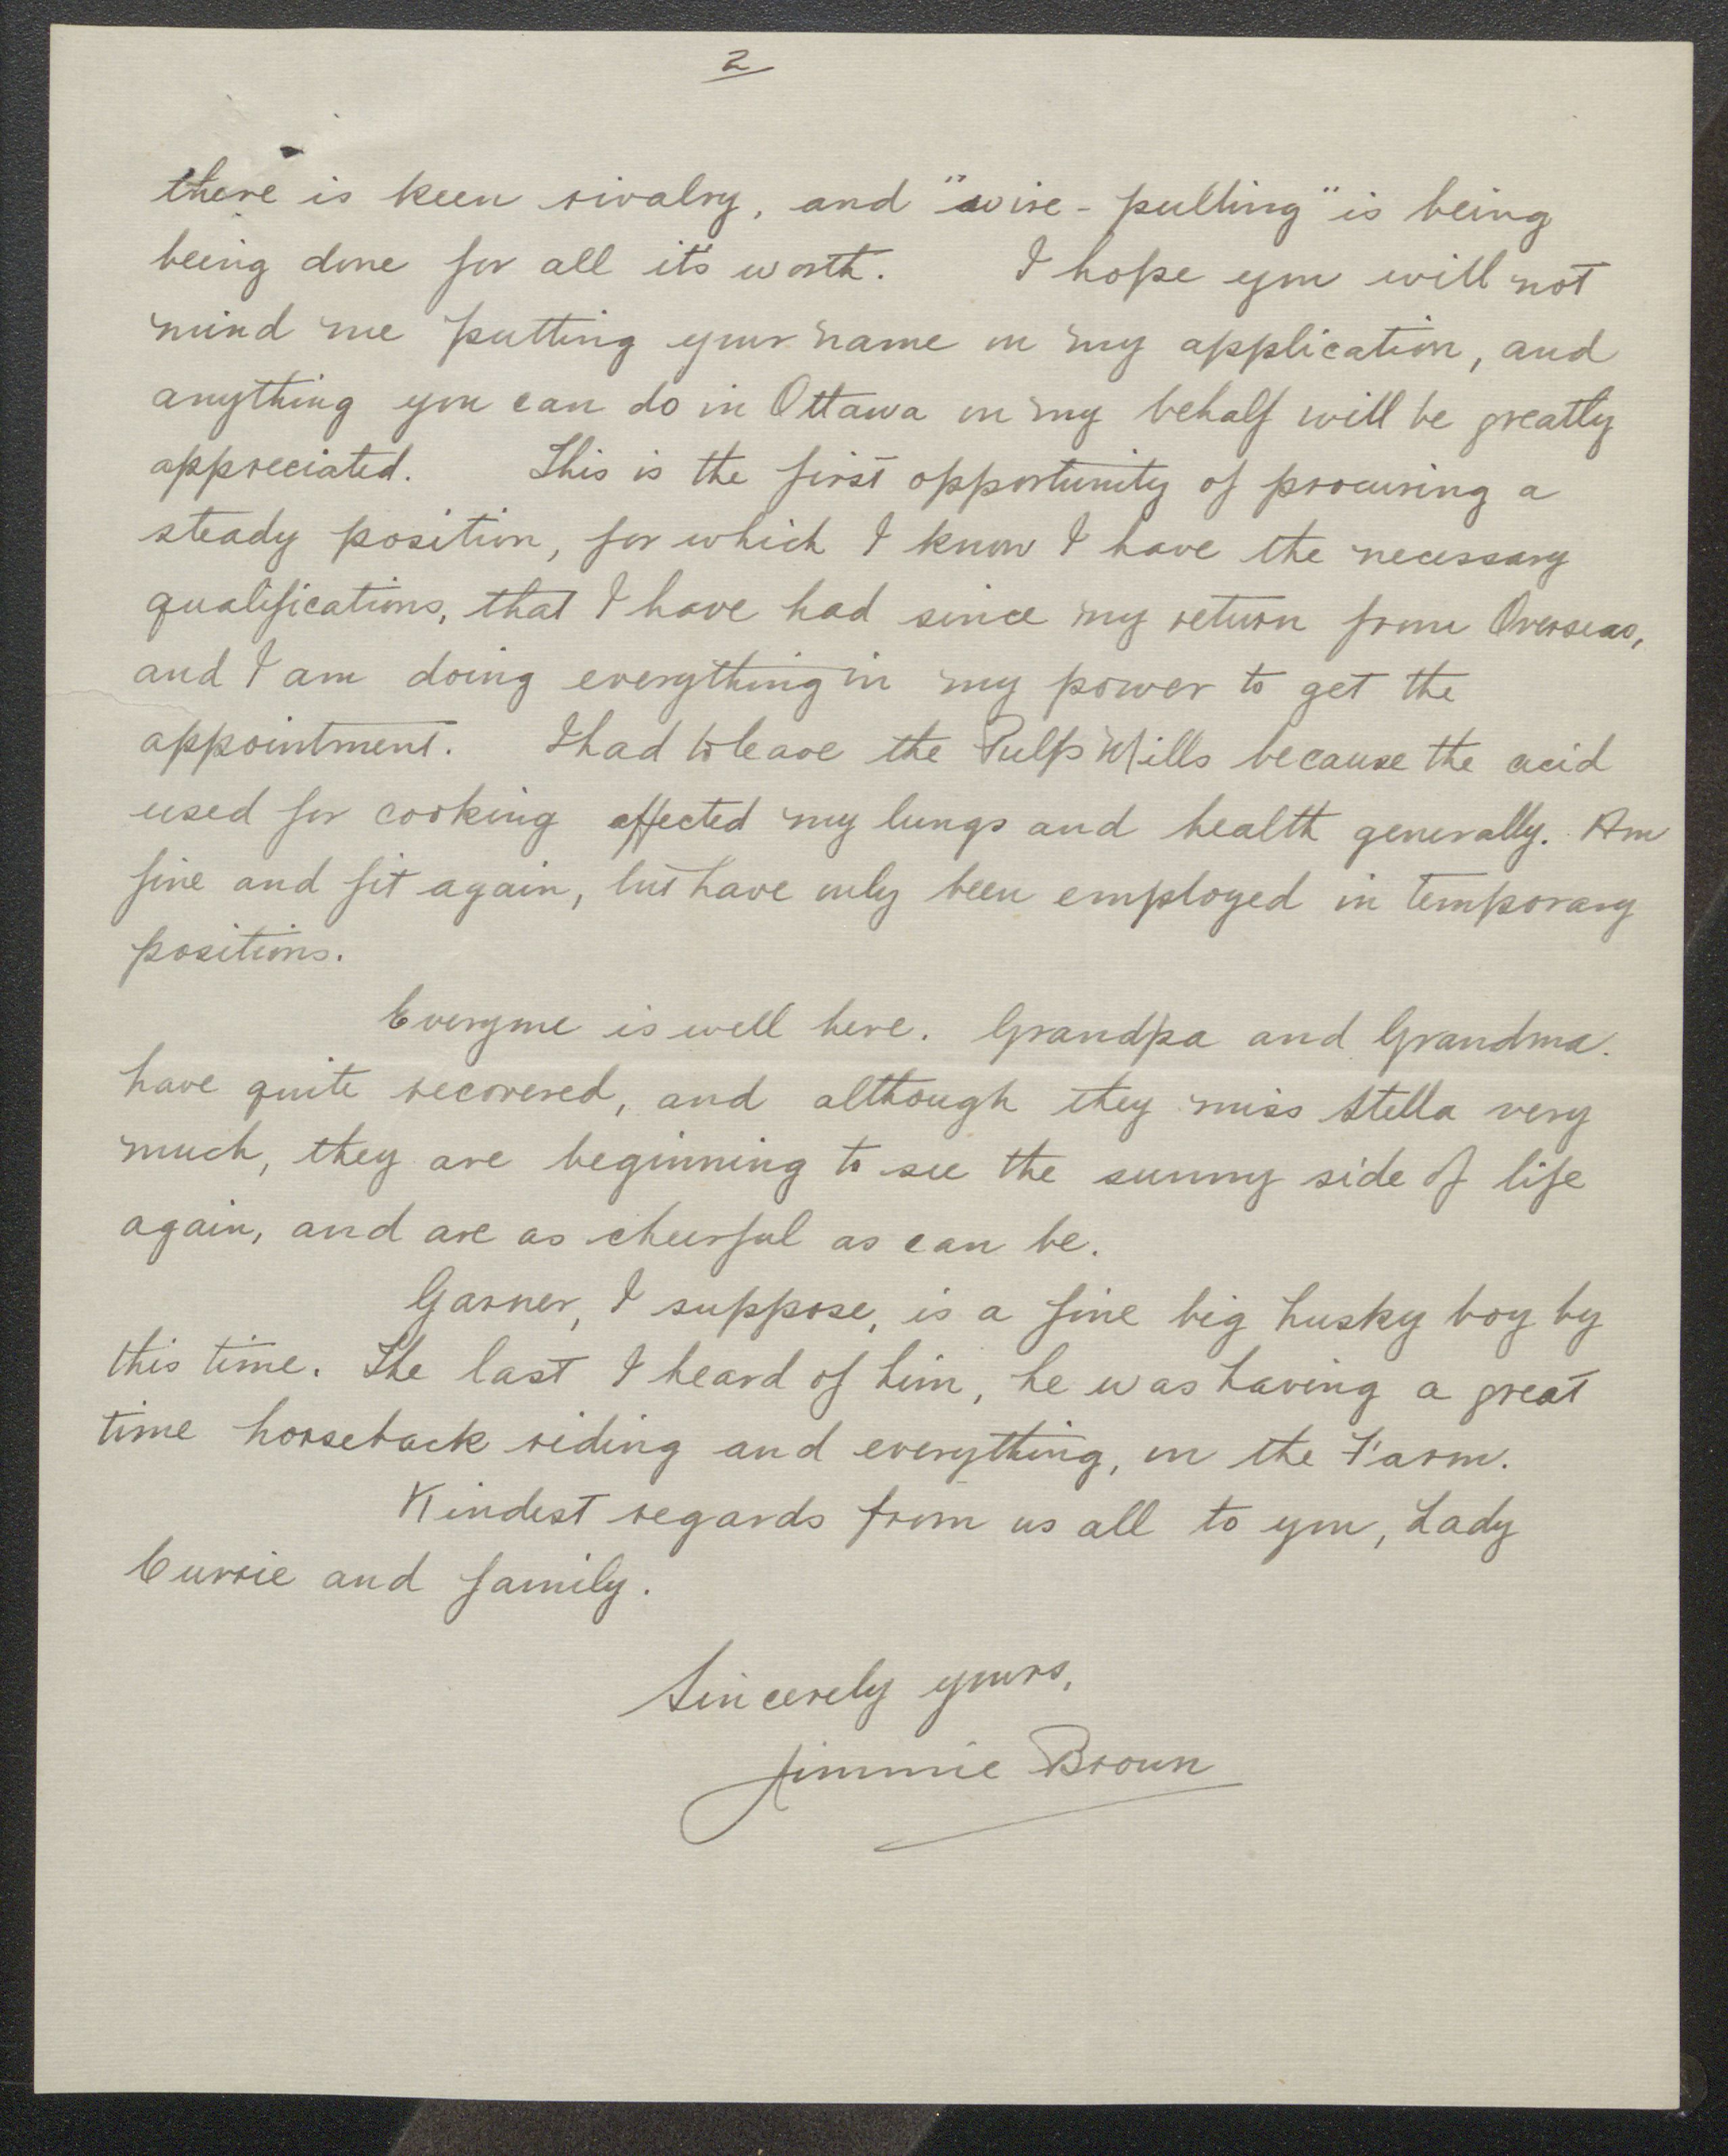 2
there is keen rivalry, and "wire-pulling" is being
being done for all it's worth. I hope you will not
mind me putting your name on my application, and
anything you can do in Ottawa on my behalf will be greatly
appreciated. This is the first opportunity of procuring a
steady position, for which I know I have the necessary
qualifications, that I have had since my return from Overseas,
and I am doing everything in my power to get the
appointment. I had to leave the Pulp Mills because the acid
used for cooking affected my lungs and health generally. Am
fine and fit again, but have only been employed in temporary
positions.
Everyone is well here. Grandpa and Grandma.
have quite recovered, and although they miss Stella very
much, they are beginning to see the sunny side of life
again, and are as cheerful as can be.
Garner, I suppose, is a fine big husky boy by
this time. The last I heard of him, he was having a great
time horseback riding and everything, on the Farm.
Kindest regards from us all to you, Lady
Currie and family.
Sincerely yours,
Jimmie Brown